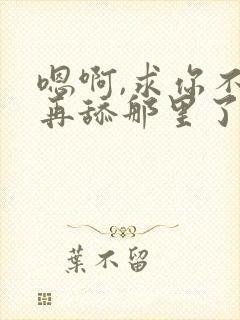 嗯啊,求你不
再舔那里了
葉不留